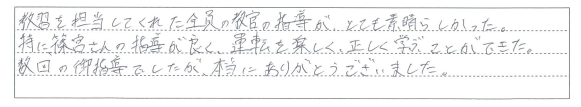 教習を担当してくれた全員の教官の指導が、とても素晴らしかった。
特に篠宮さんの指導が良く、運転を楽しく、正しく学ぶことができた。
数回の御指導でしたが、本当にありがとうございました。